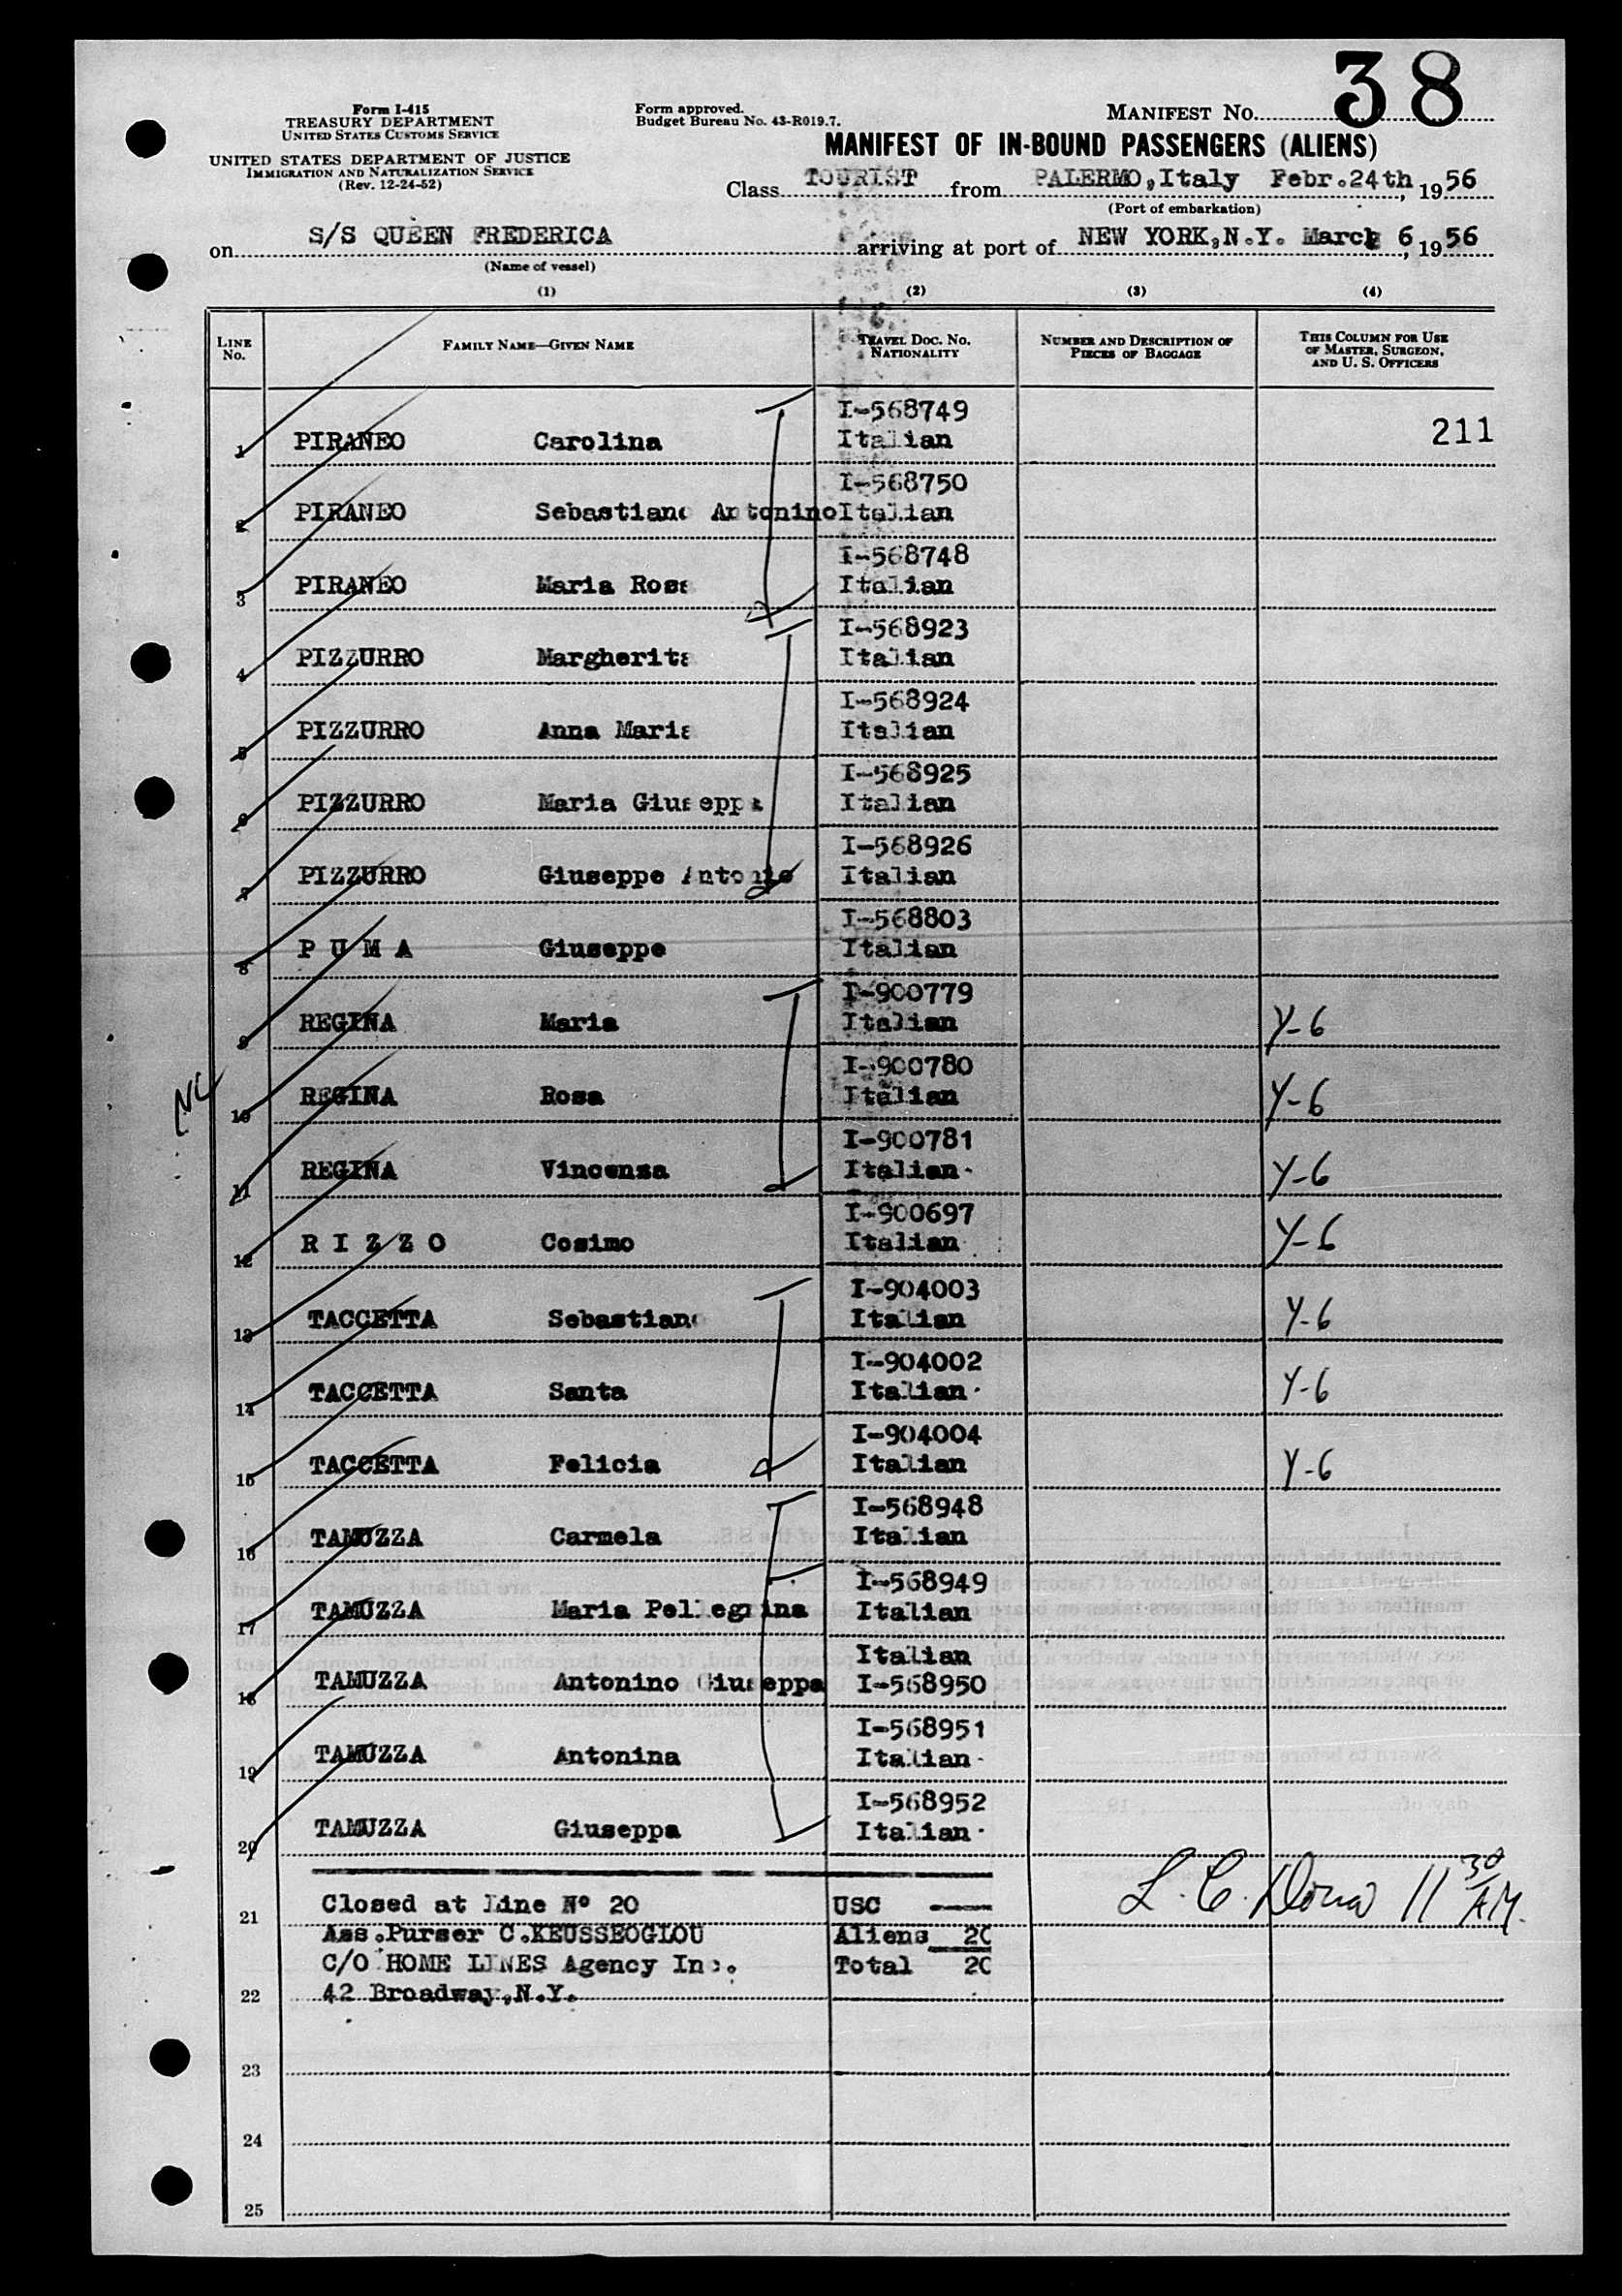 38
Form I-415
TREASURY DEPARTMENT
UNITED STATES CUSTOMS SERVICE
UNITED STATES DEPARTMENT OF JUSTICE
IMMIGRATION AND NATURALIZATION SERVICE
(Rev. 12-24-52)
Form approved.
Budget Bureau No. 43-R019.7.
MANIFEST No.
MANIFEST OF IN-BOUND PASSENGERS (ALIENS)
Class TOURIST from PALERMO, Italy Febr. 24th, 1956
(Port of embarkation)
on S/S QUEEN FREDERICA arriving at port of NEW YORK, N.Y. March 6, 1956
(Name of vessel)
(1) (2) (3) (4)
LINE No. FAMILY NAME—GIVEN NAME TRAVEL DOC. NO. NATIONALITY NUMBER AND DESCRIPTION OF PIECES OF BAGGAGE THIS COLUMN FOR USE OF MASTER, SURGEON, AND U. S. OFFICERS
I-568749
1 PIRANEO Carolina Italian 211
I-568750
2 PIRANEO Sebastiano Antonino Italian
I-568748
3 PIRANEO Maria Rosa Italian
I-568923
4 PIZZURRO Margherita Italian
I-568924
5 PIZZURRO Anna Maria Italian
I-568925
6 PIZZURRO Maria Giuseppa Italian
I-568926
7 PIZZURRO Giuseppe Antonio Italian
I-568803
8 P U M A Giuseppe Italian
I-900779
9 REGINA Maria Italian Y-6
I-900780
NC 10 REGINA Rosa Italian Y-6
I-900781
11 REGINA Vincenza Italian Y-6
I-900697
12 R I Z Z O Cosimo Italian Y-6
I-904003
13 TACCETTA Sebastiano Italian Y-6
I-904002
14 TACCETTA Santa Italian Y-6
I-904004
15 TACCETTA Felicia Italian Y-6
I-568948
16 TAMUZZA Carmela Italian
I-568949
17 TAMUZZA Maria Pellegrina Italian
Italian
18 TAMUZZA Antonino Giuseppa I-568950
I-568951
19 TAMUZZA Antonina Italian
I-568952
20 TAMUZZA Giuseppa Italian
21 Closed at Line Nº 20 USC
Ass. Purser C. KEUSSEOGLOU Aliens 20
C/O HOME LINES Agency Inc. Total 20
22 42 Broadway, N.Y.
L. C. 11 30 AM.
23
24
25